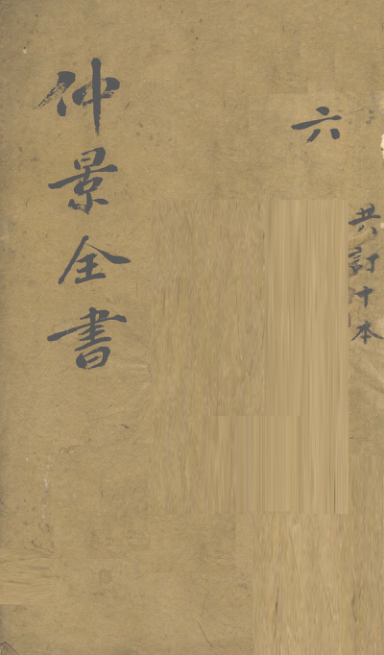 共訂十本
六
仲景全書